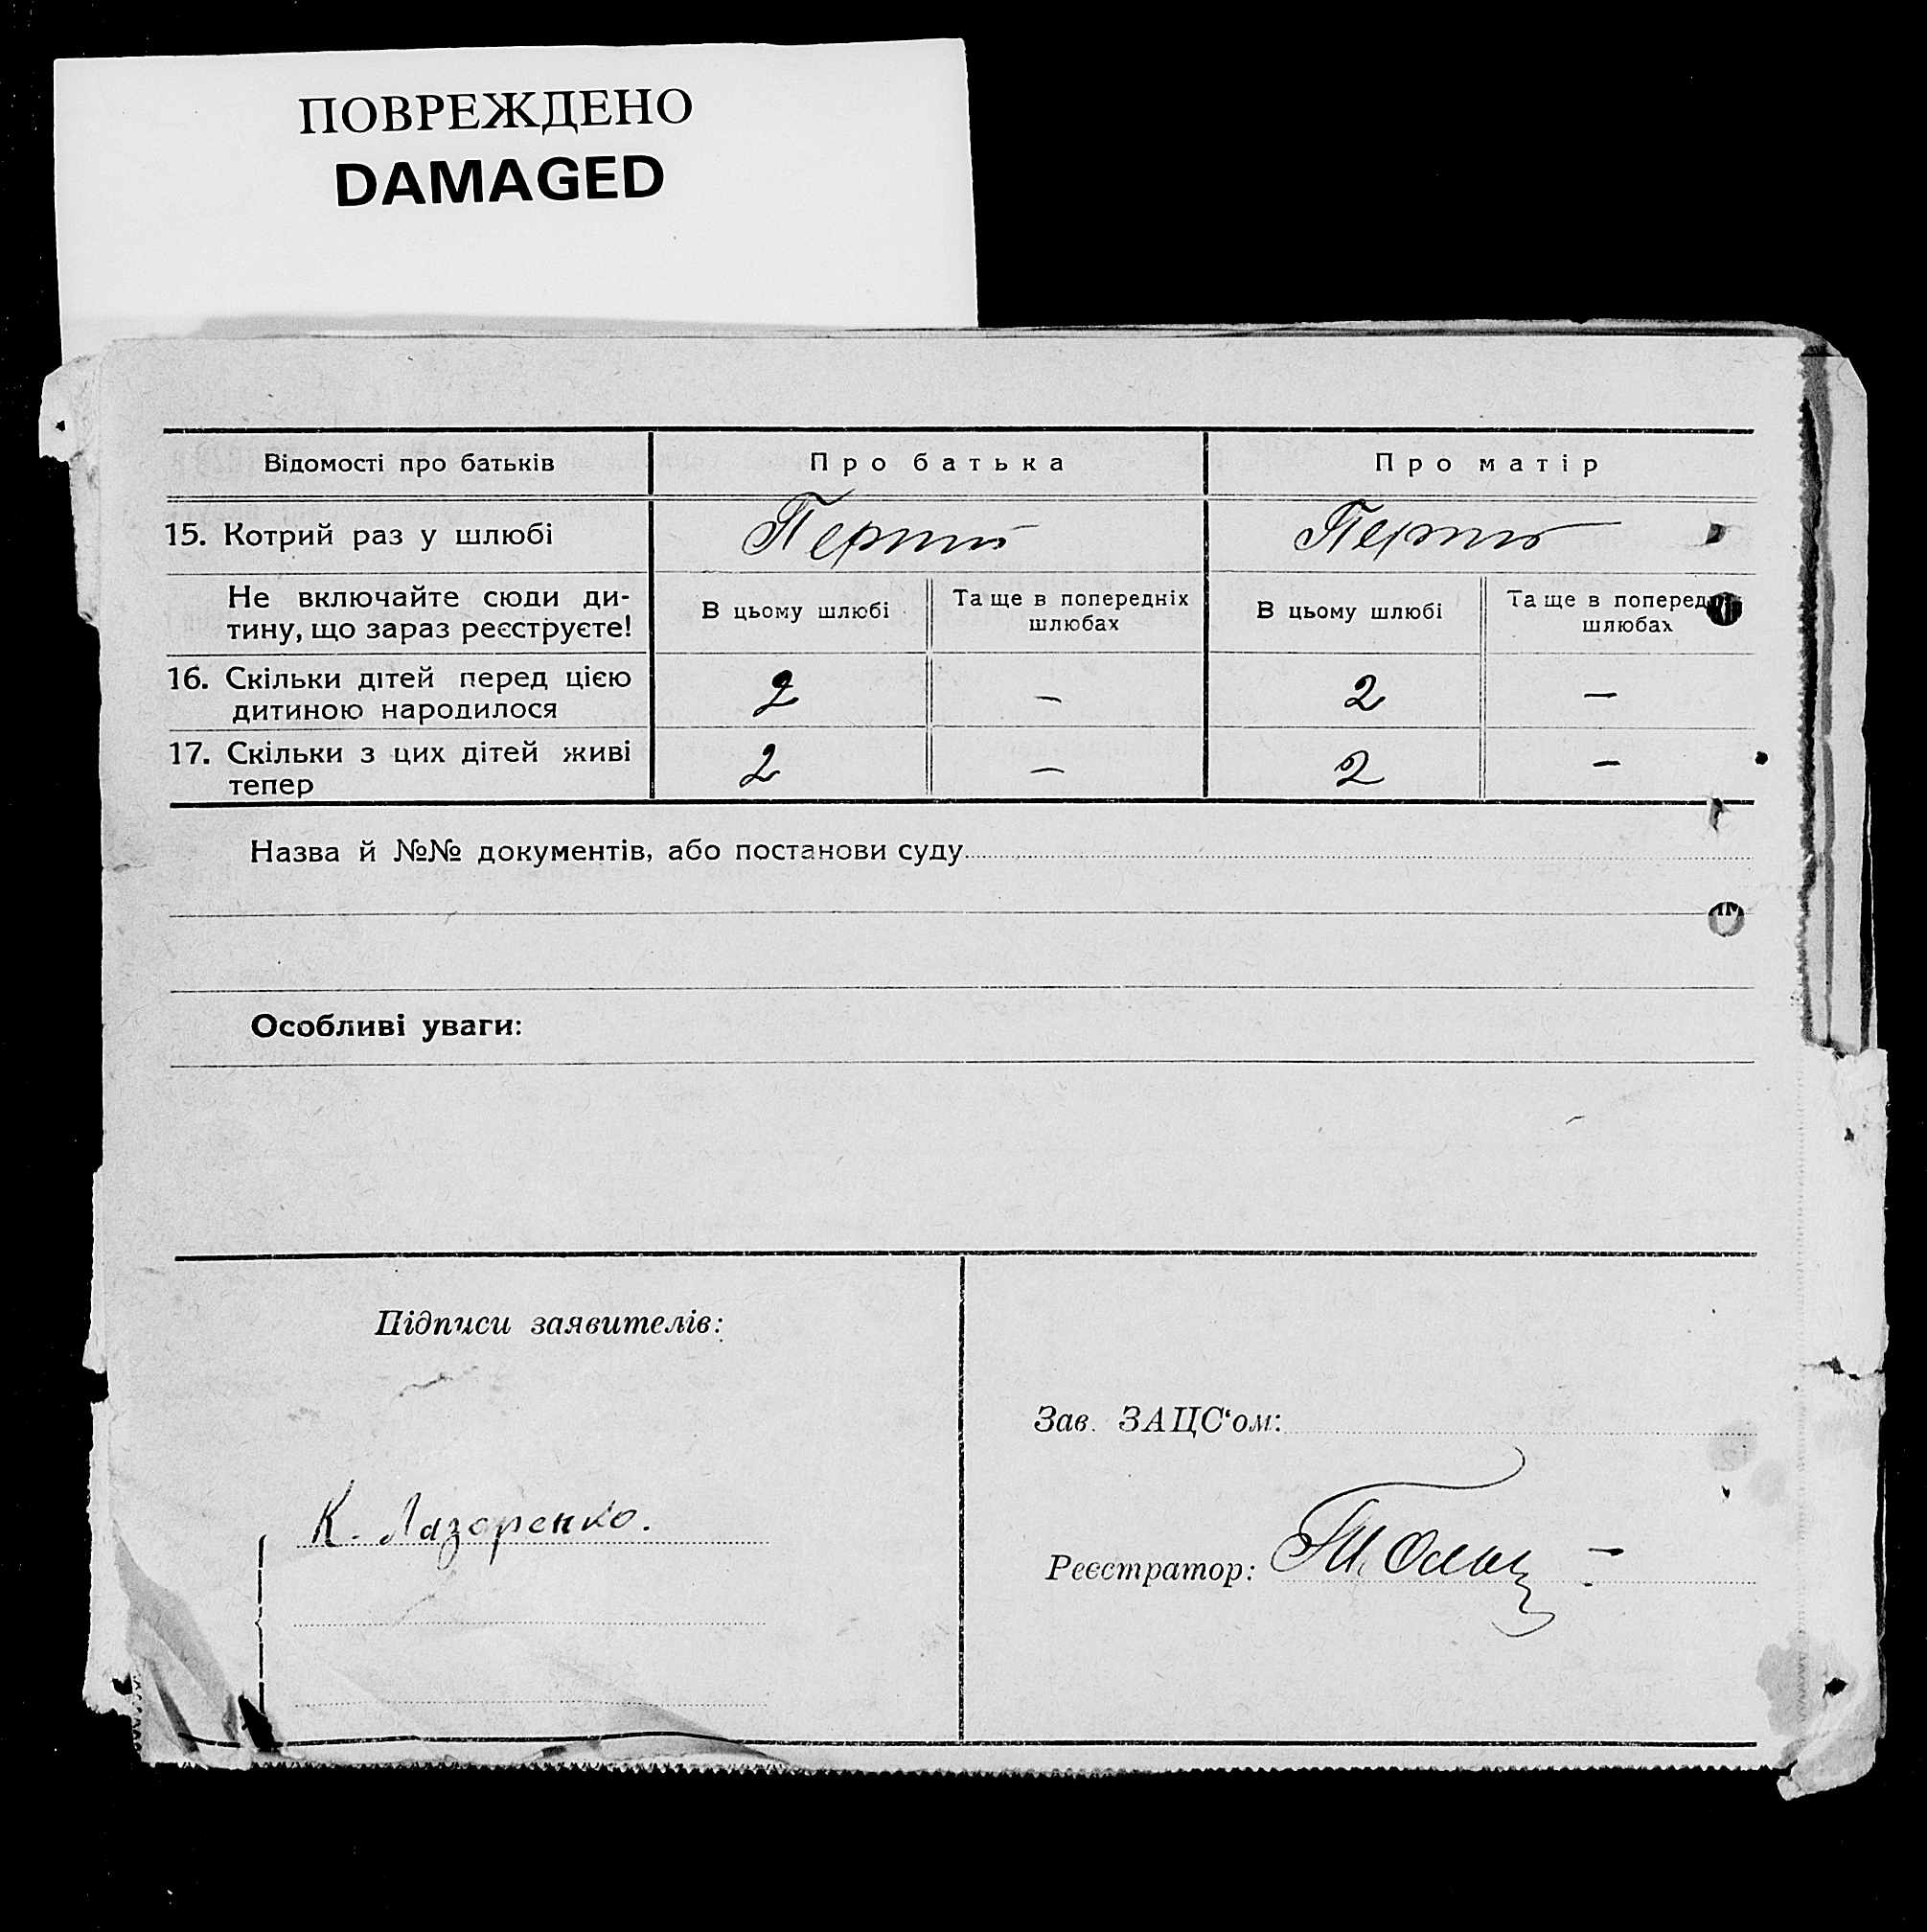 ПОВРЕЖДЕНО
DAMAGED
Відомості про батьків Про батька Про матір
15. Котрий раз у шлюбі Перший Перший
Не включайте сюди ди-
тину, що зараз реєструєте!
В цьому шлюбі Та ще в попередніх
шлюбах
В цьому шлюбі Та ще в поперед
шлюбах
16. Скільки дітей перед цією
дитиною народилося
2 – 2 –
17. Скільки з цих дітей живі
тепер
2 – 2 –
Назва й №№ документів, або постанови суду
Особливі уваги:
Підписи заявителів:
К. Лазоренко.
Зав. ЗАЦС‘ом:
Реєстратор: